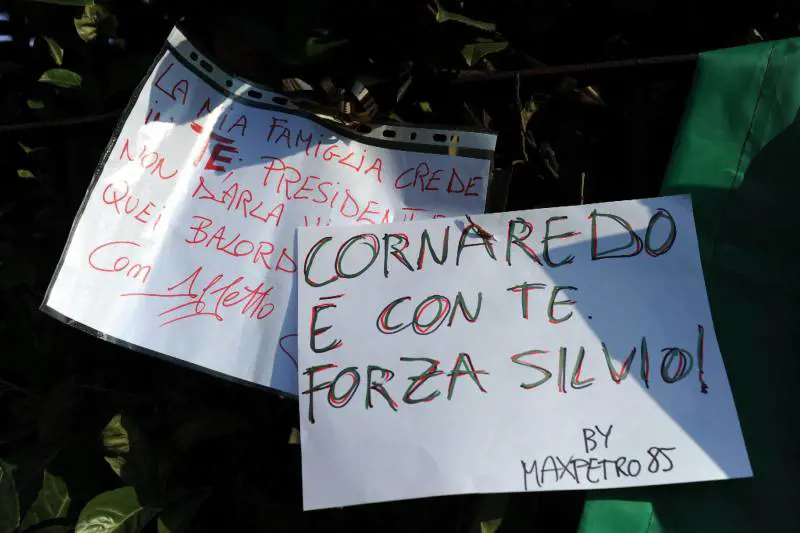 LA MIA FAMIGLIA CREDE
IN TE. PRESIDENTE
NON DARLA
QUEI BALORD
Con Affetto
CORNAREDO
È CON TE.
FORZA SILVIO!
BY
MAXPETRO85